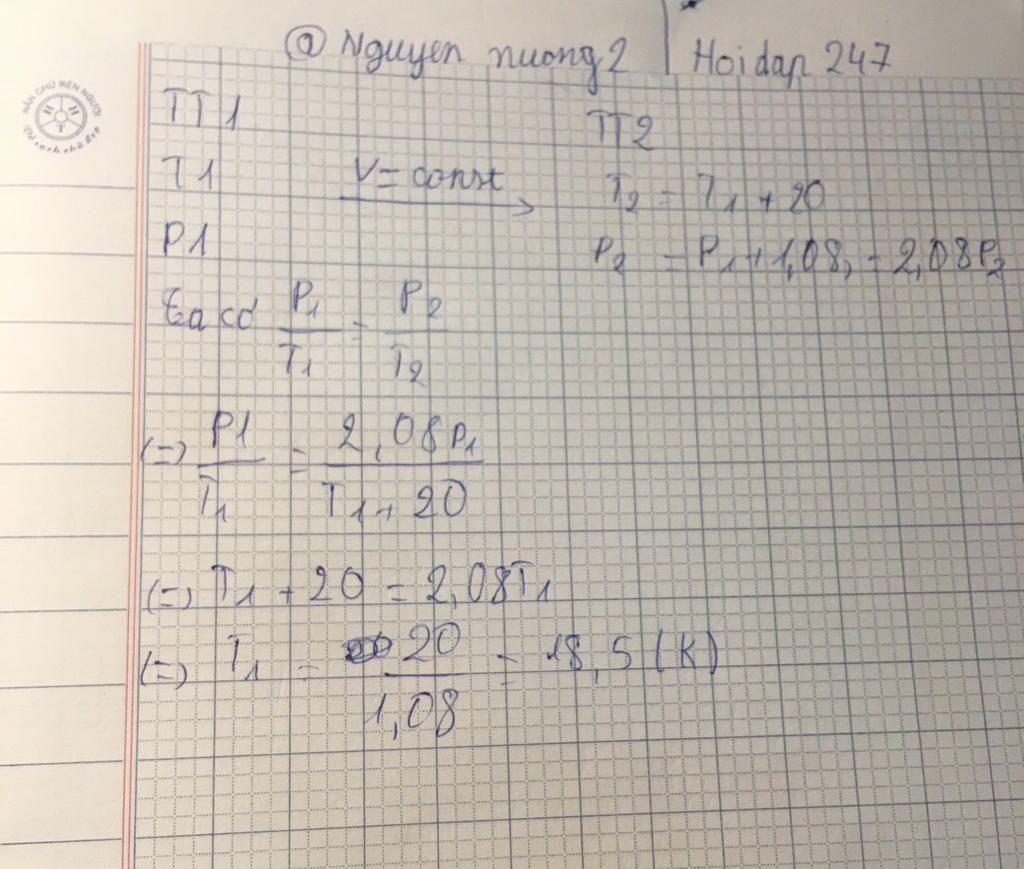 @ Nguyen nuong2 | Hoidap 247
NẮN CHỮ RÈN NGƯỜI
H H T
TT1 TT2
T1 V=const T₂ = T₁ + 20
P1 P₂ = P₁ + 1,08, = 2,08P₂
ta có P₁/T₁ = P₂/T₂
(=) P1/T₁ = 2,08P₁/T₁+20
(=) T₁ + 20 = 2,08T₁
(=) T₁ = 20/1,08 = 18,5 (K)